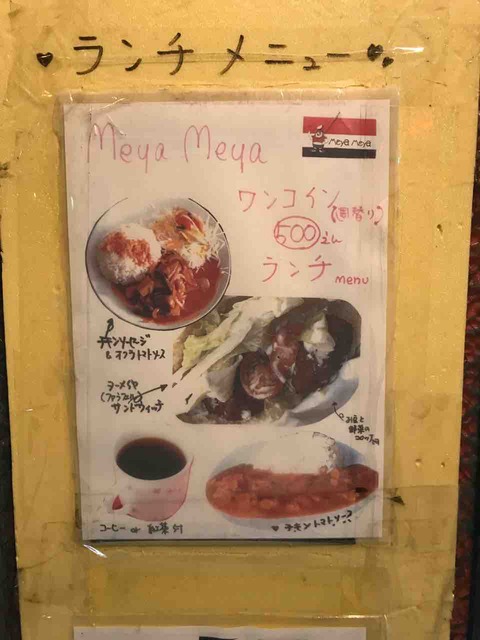 ♥ランチメニュー♥♥
Meya Meya
Meya Meya
ワンコイン(週替り)
500えん
ランチ menu
チキンソーセージ
& オクラトマトソース
ターメイヤ
(ファラフェル)
サンドウィッチ
お豆と
野菜の
コロッケ
コーヒー or 紅茶付
♥ チキントマトソース